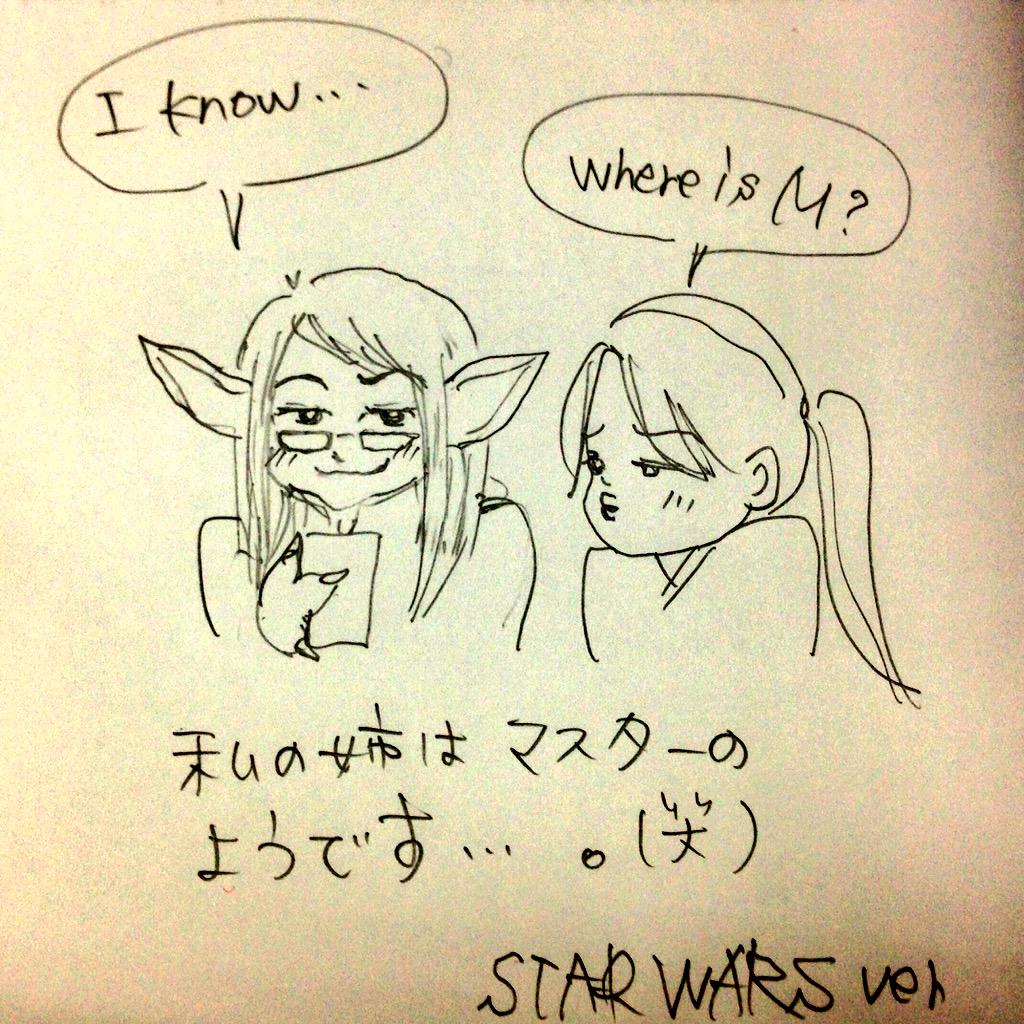 I know...
Where is M?
私の姉は マスターの
ようです... 。(笑)
STAR WARS ver